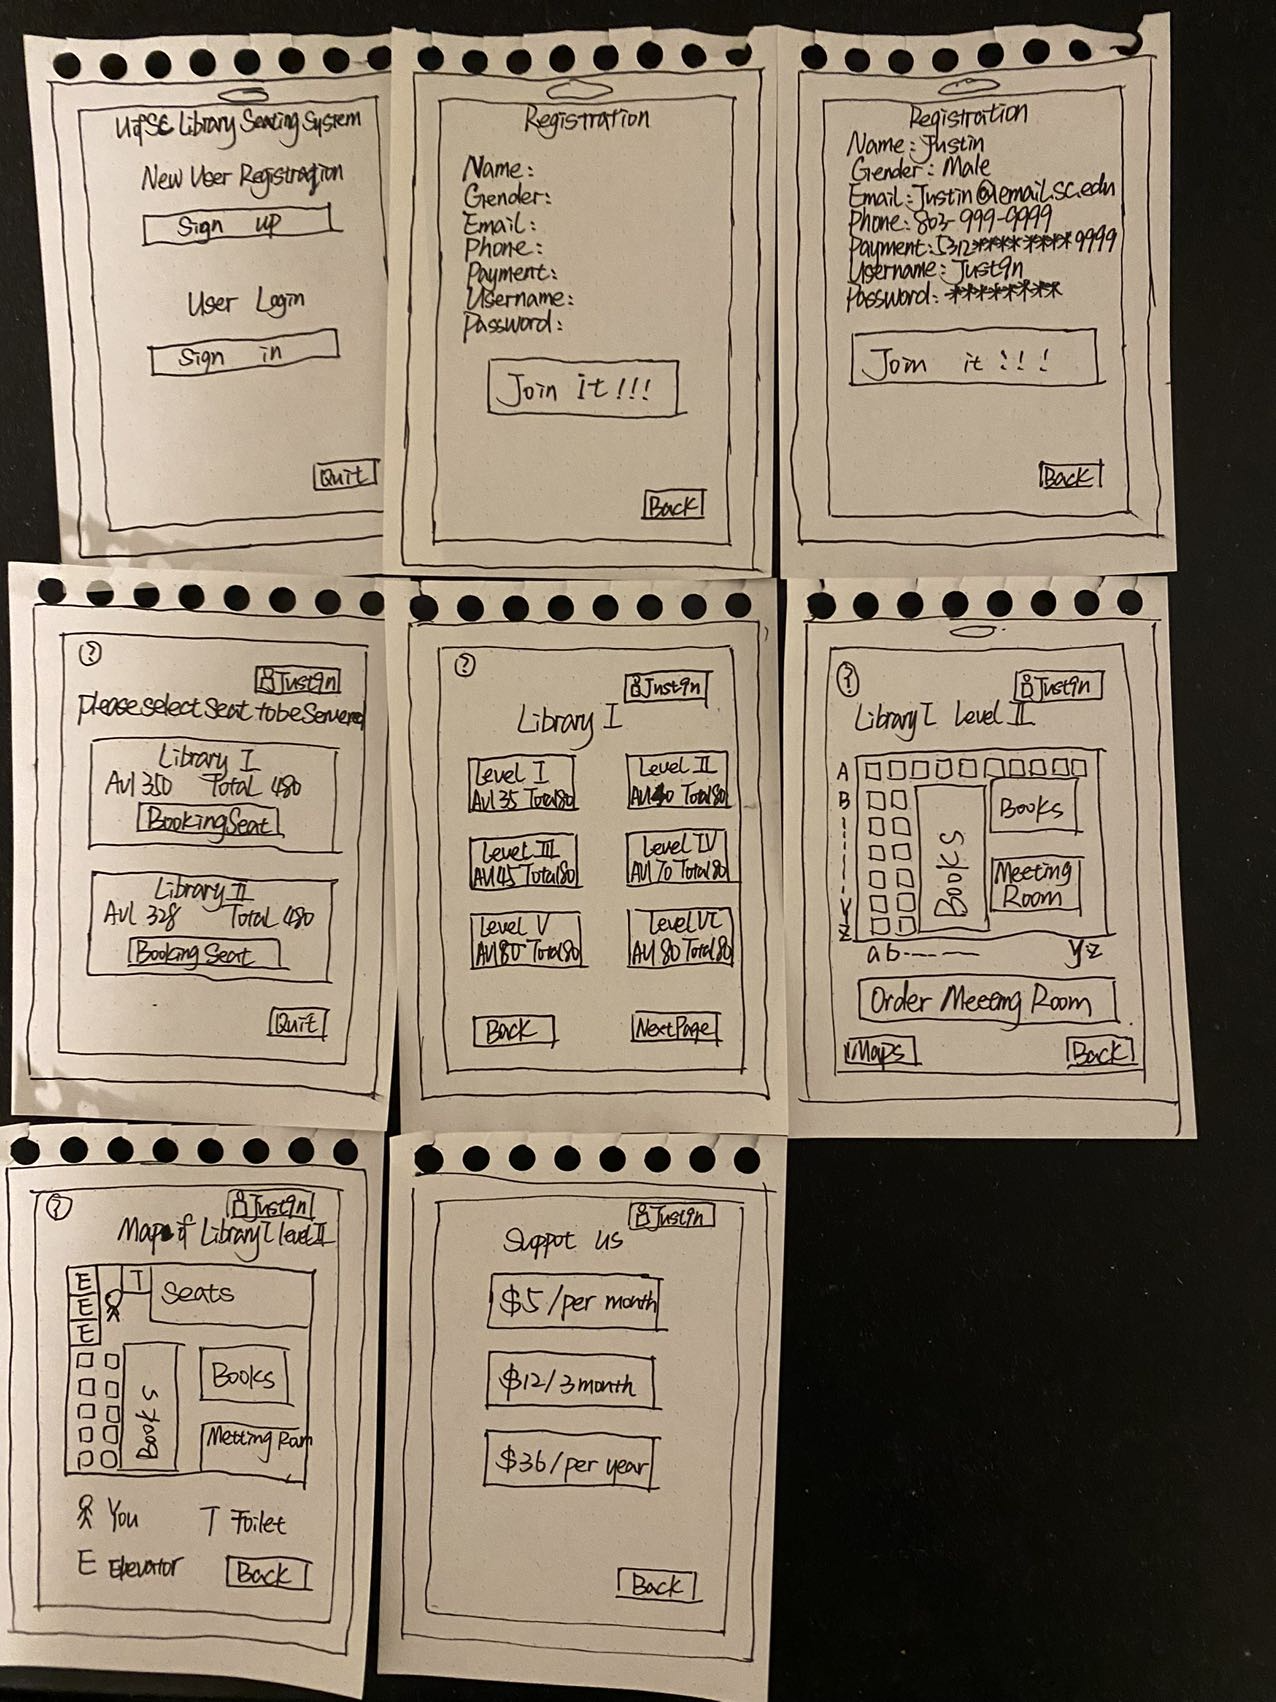 UofSC Library Seating System
New User Registration
Sign up
User Login
Sign in
Quit
Registration
Name:
Gender:
Email:
Phone:
Payment:
Username:
Password:
Join It!!!
Back
Registration
Name: Justin
Gender: Male
Email: Justin@email.sc.edu
Phone: 803-999-9999
Payment: 5312**** ****9999
Username: Just9n
Password: ********
Join it!!!
Back
?
Just9n
please select Seat to be Served
Library I
Avl 350 Total 480
Booking Seat
Library II
Avl 328 Total 480
Booking Seat
Quit
?
Just9n
Library I
Level I
Avl 35 Total 80
Level II
Avl 40 Total 80
Level III
Avl 45 Total 80
Level IV
Avl 70 Total 80
Level V
Avl 80 Total 80
Level VI
Avl 80 Total 80
Back
Next Page
?
Just9n
Library I Level II
A
B
Y
Z
Books
Books
Meeting
Room
a b ---- yz
Order Meeting Room
Maps
Back
?
Just9n
Map of Library I level II
E
E
E
T
Seats
Books
Books
Metting Room
You
T Toilet
E Elevator
Back
Just9n
Suppot us
$5/per month
$12/3 month
$36/per year
Back